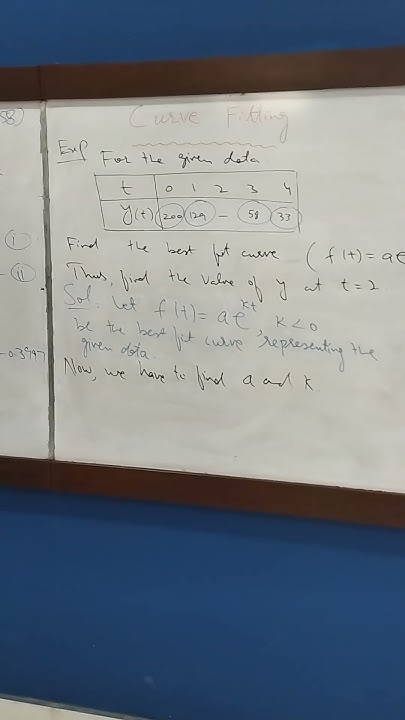 58)
Curve Fitting
Exp For the given data
t 0 1 2 3 4
y(t) 200 129 - 58 33
I Find the best fit curve (f(t) = ae
II Thus, find the value of y at t = 2
Sol. Let f(t) = ae^kt, k < 0
be the best fit curve, representing the
given data.
-0.3997 Now, we have to find a and k.